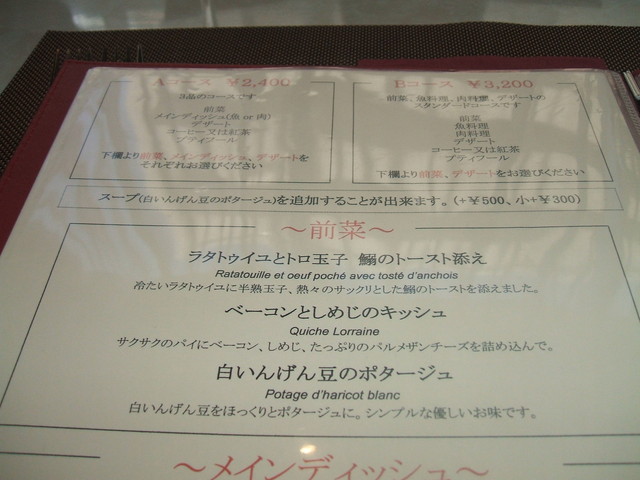 Aコース ￥2,400
3品のコースです
前菜
メインディッシュ(魚 or 肉)
デザート
コーヒー又は紅茶
プティフール
下欄より前菜、メインディッシュ、デザートを
それぞれお選びください
Bコース ￥3,200
前菜、魚料理、肉料理、デザートの
スタンダードコースです
前菜
魚料理
肉料理
デザート
コーヒー又は紅茶
プティフール
下欄より前菜、デザートをお選びください
スープ(白いんげん豆のポタージュ)を追加することが出来ます。(+￥500、小+￥300)
～前菜～
ラタトゥイユとトロ玉子 鰯のトースト添え
Ratatouille et oeuf poché avec tosté d'anchois
冷たいラタトゥイユに半熟玉子、熱々のサックリとした鰯のトーストを添えました。
ベーコンとしめじのキッシュ
Quiche Lorraine
サクサクのパイにベーコン、しめじ、たっぷりのパルメザンチーズを詰め込んで。
白いんげん豆のポタージュ
Potage d'haricot blanc
白いんげん豆をほっくりとポタージュに。シンプルな優しいお味です。
～メインディッシュ～